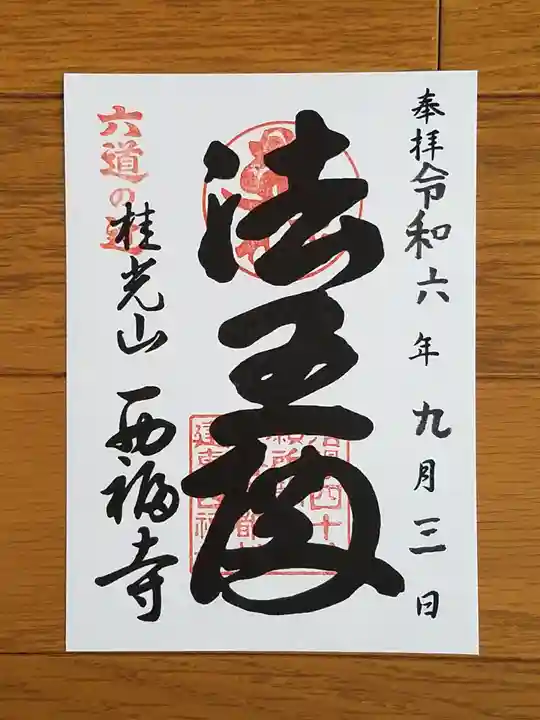 奉拝 令和六年九月三日
法王
六道の辻
桂光山 西福寺